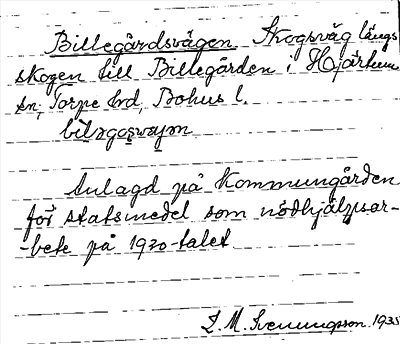 Billegårdsvägen. Skogsväg längs
skogen till Billegården i Hjärtum
sn, Torpe hd, Bohus l.
Anlagd på Kommungården
för statsmedel som nödhjälpsar-
-bete på 1920-talet
L. M. Svenungsson. 1935